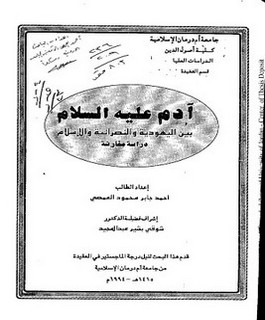 جامعة أم درمان الإسلامية
كلية أصول الدين
الدراسات العليا
قسم العقيدة
آدم عليه السلام
بين اليهودية والنصرانية والإسلام
دراسة مقارنة
إعداد الطالب
أحمد جابر محمود العمصي
إشراف فضيلة الدكتور
شوقي بشير عبدالمجيد
قدم هذا البحث لنيل درجة الماجستير في العقيدة
من جامعة أم درمان الإسلامية
١٤١٥هـ - ١٩٩٤م
Center of Thesis Deposit